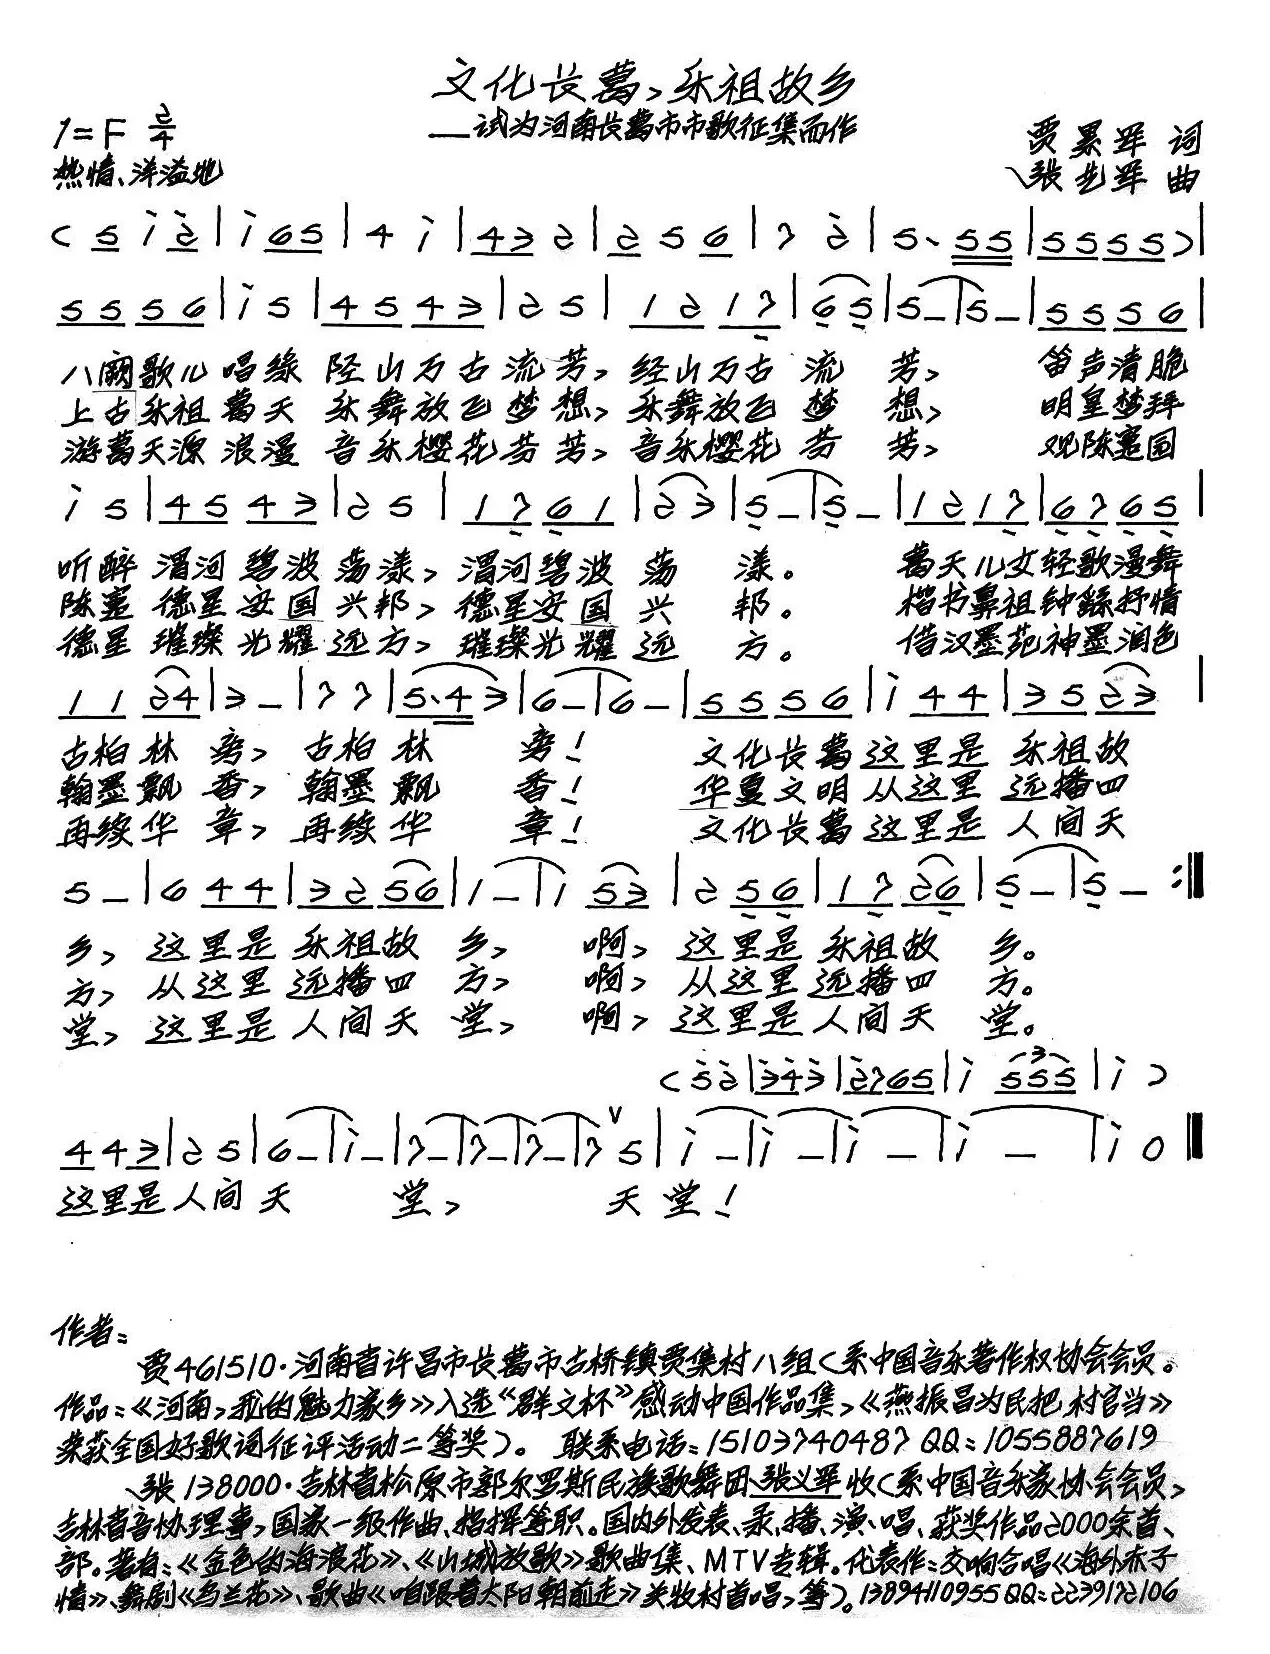 文化长葛,乐祖故乡
——试为河南长葛市市歌征集而作
1=F 2/4
热情、洋溢地
贾累军 词
张艺军 曲
( 5 i 2 | i 65 | 4 i | 43 2 | 2 5 6 | 7 2 | 5. 55 | 5555 ) |
55 56 | i 5 | 45 43 | 2 5 | 12 17 | 6 5 | 5 – | 5 – | 55 56 |
八阕歌儿 唱缘 陉山万古 流芳, 经山万古 流 芳, 笛声清脆
上古乐祖 葛天 乐舞放飞 梦想, 乐舞放飞 梦 想, 明皇梦拜
游葛天源 浪漫 音乐樱花 芬芳, 音乐樱花 芬 芳, 观陈寔园
i 5 | 45 43 | 2 5 | 17 61 | 2 3 | 5 – | 5 – | 12 17 | 67 65 |
听醉 渭河 碧波 荡漾, 渭河碧波 荡 漾。 葛天儿女轻歌漫舞
陈寔 德星安国 兴邦, 德星安国 兴 邦。 楷书鼻祖钟繇抒情
德星 璀璨光耀 远方, 璀璨光耀 远 方。 借汉墨苑神墨润色
11 24 | 3 – | 7 7 | 5.4 3 | 6 – | 6 – | 55 56 | i 44 | 35 23 |
古柏林 旁, 古柏林 旁! 文化长葛这里是 乐祖故
翰墨飘 香, 翰墨飘 香! 华夏文明从这里 远播四
再续华 章, 再续华 章! 文化长葛这里是 人间天
5 – | 6 44 | 32 56 | 1 – | 1 53 | 2 56 | 17 26 | 5 – | 5 – :‖
乡, 这里是 乐祖故 乡, 啊, 这里是 乐祖故 乡。
方, 从这里 远播四 方, 啊, 从这里 远播四 方。
堂, 这里是 人间天 堂, 啊, 这里是 人间天 堂。
( 5 2 | 3 4 3 | 2765 | i 555 | i )
44 3 | 2 5 | 6 – | i – | 7 – | 7 – | 7 – | 7 V 5 | i – | i – | i – | i – | i 0 ‖
这里是人间 天 堂, 天 堂!
作者:
贾461510·河南省许昌市长葛市古桥镇贾集村八组(系中国音乐著作权协会会员。
作品:《河南,我的魅力家乡》入选“群文杯”感动中国作品集,《燕振昌为民把村官当》
荣获全国好歌词征评活动二等奖)。 联系电话:15103740487 QQ:1055887619
张138000·吉林省松原市郭尔罗斯民族歌舞团张义军收(系中国音乐家协会会员,
吉林省音协理事,国家一级作曲、指挥等职。国内外发表、录、播、演、唱、获奖作品2000余首、
部。著有:《金色的海浪花》、《山城放歌》歌曲集、MTV专辑。代表作:交响合唱《海外赤子
情》、舞剧《乌兰花》、歌曲《咱跟着太阳朝前走》关牧村首唱,等)。13894110955 QQ:2239172106